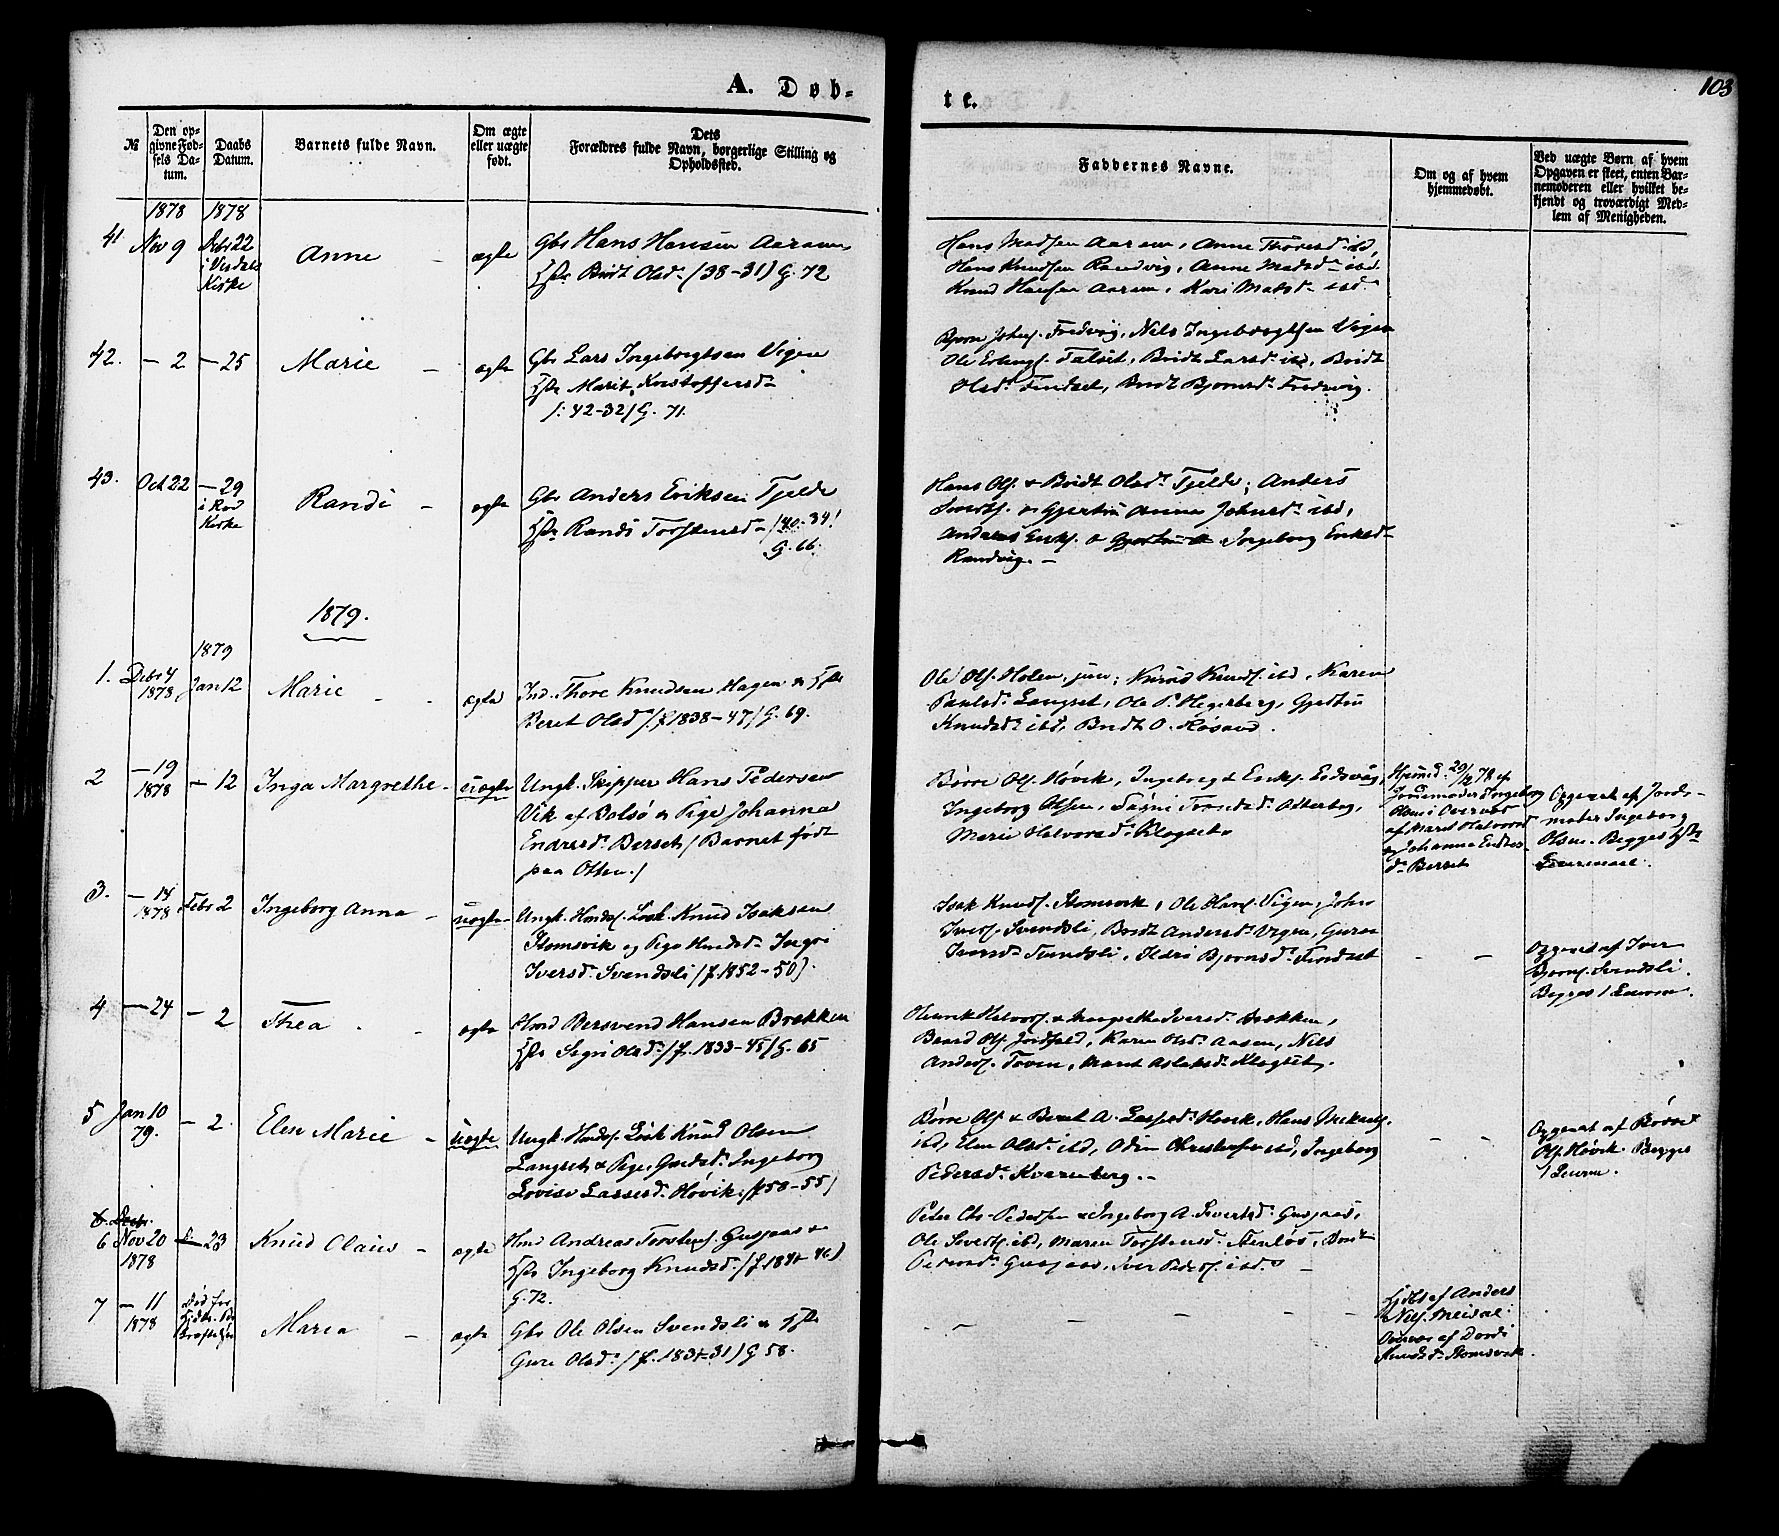 103
A. Døb-
te.
№
Den op-
givne Fød-
sels Da-
tum.
Daabs
Datum.
Barnets fulde Navn.
Om ægte
eller uægte
født.
Dets
Forældres fulde Navn, borgerlige Stilling og
Opholdssted.
Faddernes Navne.
Om og af hvem
hjemmedøbt.
Ved uægte Børn af hvem
Opgaven er skeet, enten Bar-
nemoderen eller hvilket be-
kjendt og troværdigt Med-
lem af Menigheden.
1878 1878
41. Nov 9 Debr 22
Kirke
Anne
ægte
Gbr Hans Hansen Aaram
Hstr Bridt Olsdr (38-31) G. 72
Hans Madsen Aaram, Anne ibd,
Hans Knudsen Randvig, Anne Madsdr ibd.
Knud Hansen Aaram, Kari Matsdr ibd.
42. - 2 - 25
Marie
ægte
Gbr Lars Ingebrigtsen Vigen
Hstr Marit Kristoffersdr
/: 42-32/ G. 71.
Bjørn Johns. Fredsvig, Nils Ingebrigtsen Vigen
Ole Erlings. Talset, Bridt Larsdr ibd, Bridt
Olsdr Findset, Bridt Bjørnsdr Fredsvig.
43. Oct 22 - 29
i Rød
Kirke
Randi
ægte
Gbr Anders Eriksen Tjelde
Hstr Randi Torstensdr /40-34/
G. 66.
Hans Ols. & Bridt Olsdr Tjelde, Anders
Anne Johnsdr ibd,
Anders Eriks. & Ingeborg Eriksdr
Randvig. -
1879.
1879
1. Debr 4
1878 Jan 12
Marie
ægte
Ind. Thore Knudsen Hagen & Hstr
Beret Olsdr /f. 1838-47/ G. 69.
Ole Ols. Holen, jun, Knud Knuds. ibd, Karen
Paulsdr Langset, Ole P. Hegerberg, Gjertru
Knudsdr ibd, Bridt O. Røsand.
2 - 19
1878 - 12
Inga Margrethe
uægte
Ungk. Skipper Hans Pedersen
Vik af Bolsø & Pige Johanna
Endresdr Berset / Barnet født
paa Otten /
Børre Ols. Høvik, Ingebrigt Eriks. Eidsvåg,
Ingeborg Olsen, Østerberg,
Marie Halvorsdr Klogset.
Hjemmd. 29/12 78 af
Jordemoder Ingeborg
Olsen Overvær
af Maret Halvorsd
& Johanna Endres-
dr Berset
Opgivet af Jorde-
moder Ingeborg
Olsen. Begges 1ste
Leiermaal.
3. - 14
1878 Febr 2
Ingeborg Anna
uægte
Ungk. Knud Isaksen
Stomsvik og Pige Ingri
Iversdr Svendsli /f. 1852-50/.
Isak Knuds. Stomsvik, Ole Hans. Vigen, John
Ivers. Svendsli, Bridt Andersdr Vigen, Guren
Iversdr Svendsli, Ildri Bjørnsdr Findset
- -
Opgivet af Iver
Bjørns. Svendsli.
Begges 1 Leierm.
4 - 24 - 2
Thea
ægte
Hmd Bersvend Hansen Brekken
Hstr Sigri Olsdr /f. 1833-45/ G. 65
Henrik Halvors. & Margrethe Iversdr Brekken,
Baard Ols. Karen Olsdr Aasen, Nils
Anders. Toven, Marit Aslaksdr Klogset.
5 Jan 10
79. - 2.
Elen Marie
uægte
Ungk. Knud Olsen
Langset & Pige, Ingeborg
Lovise Larsesdr Høvik /f 50-55/
Børre Ols. & Beret A. Høvik, Hans Mikaels.
ibd, Elen Olsdr ibd, Odin Christensen ibd, Ingeborg
Pedersdr Kvernberg. -
- -
Opgivet af Børre
Ols. Høvik. Begges
1 Leierm.
6 Nov 20
1878 - 23
Knud Olaus
ægte
Hmd Andreas Torstens. Gusjaas &
Hstr Ingeborg Knudsdr /f. 1841-46/
G. 72.
Peter Chr. Pedersen & Ingeborg A. Sivertsdr Gusjaas,
Ole Siverts. ibd, Maren Torstensdr
Pedersdr Gusjaas, Iver Peders. ibd.
7 - 11
1878
Maria
ægte
Gbr Ole Olsen Svendsli & Hstr
Gure Olsdr /f. 1834-31/ G 58.
- - - -
Hjdbt af Anders
Nils. Meisal.
Overvær af Dordi
Knudsdr Stomsvik.